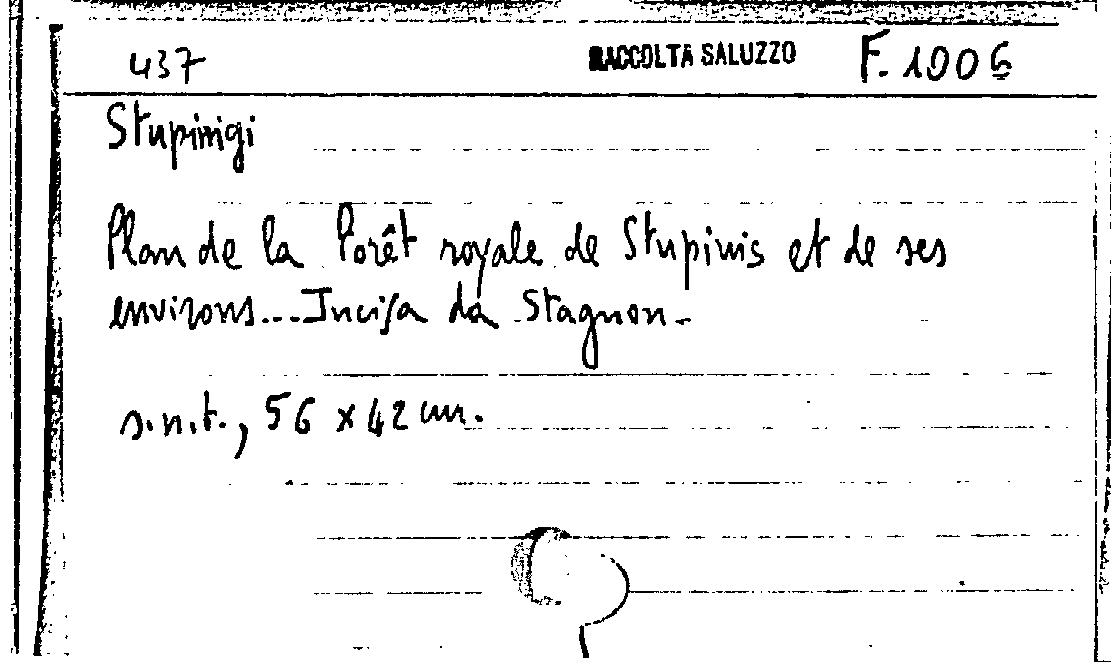 437 RACCOLTA SALUZZO F. 1006
Stupinigi
Plan de la Forêt royale de Stupinis et de ses
environs... Incisa da Stagnon-
s.n.t., 56 x 42 cm.